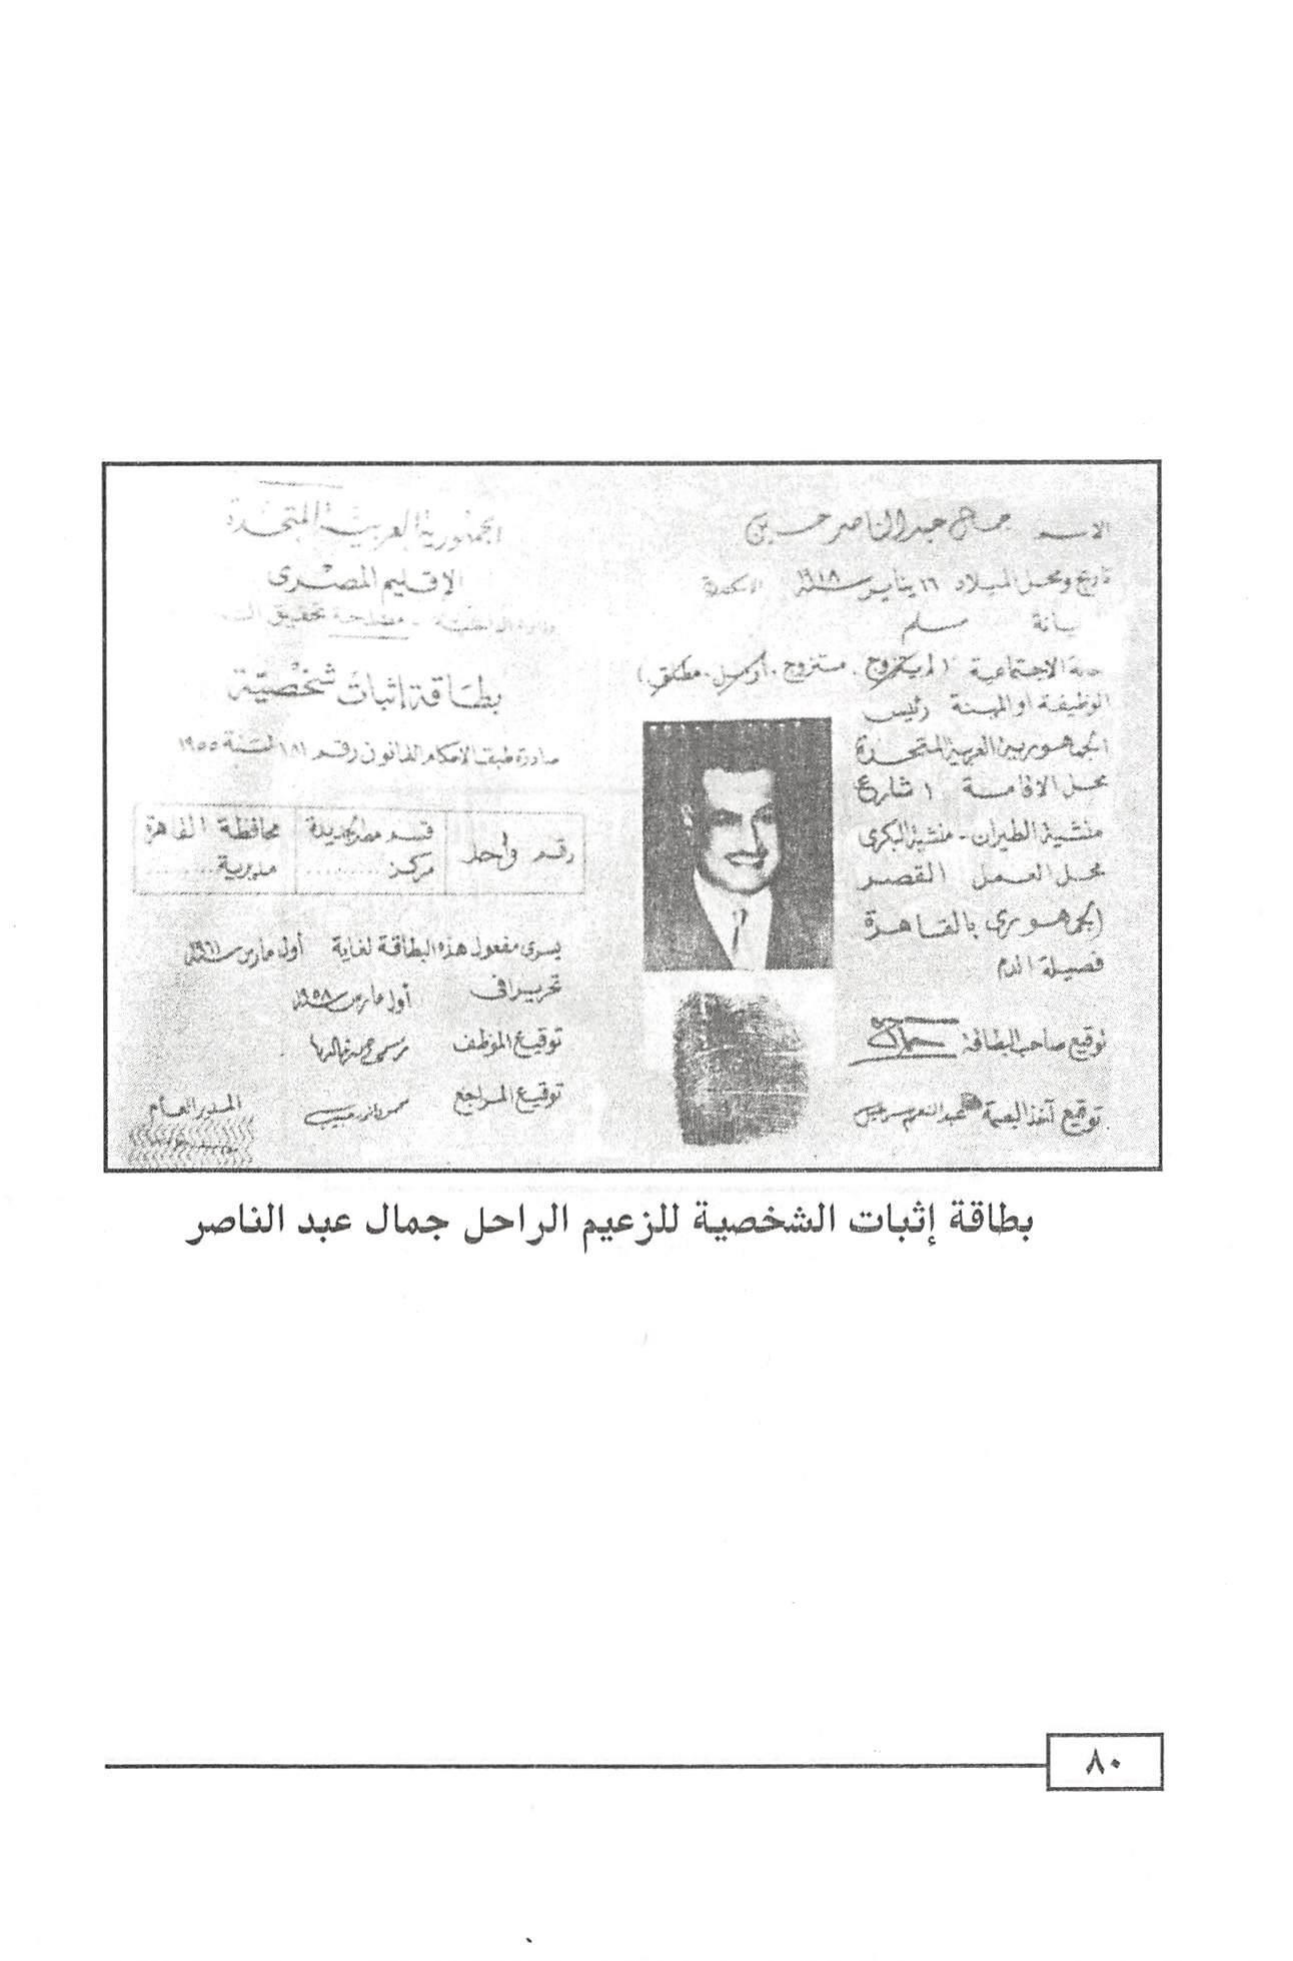 الاسم جمال عبد الناصر حسين
تاريخ ومحل الميلاد ١٦ يناير سنة ١٩١٨ الاسكندرية
يانة مسلم
حالة الاجتماعية (لم يتزوج. متزوج. أرمل. مطلق.)
الوظيفة او المهنة رئيس
الجمهورية العربية المتحدة
محل الاقامة ١ شارع
منشية الطيران - منشية البكرى
محل العمل القصر
الجمهورى بالقاهرة
فصيلة الدم
توقيع صاحب البطاقة جمال
توقيع آخذ البصمة عبد المنعم
الجمهورية العربية المتحدة
الاقليم المصرى
وزارة الداخلية - مصلحة تحقيق
بطاقة إثبات شخصية
صادرة طبقا لأحكام القانون رقم ١٨١ لسنة ١٩٥٥
رقم واحد قسم مصر الجديدة محافظة القاهرة
مركز ......... مديرية .........
يسرى مفعول هذه البطاقة لغاية أول مارس سنة ١٩٦١
تحريرا فى أول مارس سنة ١٩٥٨
توقيع الموظف
توقيع المراجع
المدير العام
بطاقة إثبات الشخصية للزعيم الراحل جمال عبد الناصر
٨٠